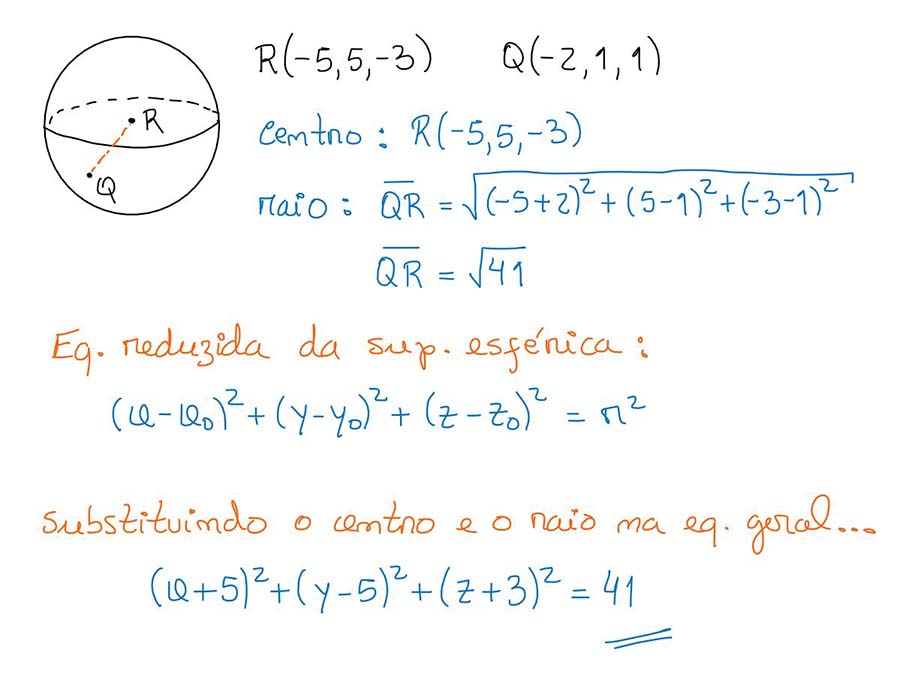 R(-5,5,-3) Q(-2,1,1)
R
Q
centro: R(-5,5,-3)
raio: Q̅R̅ = √(-5+2)²+(5-1)²+(-3-1)²
Q̅R̅ = √41
Eq. reduzida da sup. esférica:
(x-x₀)²+(y-y₀)²+(z-z₀)² = r²
substituindo o centro e o raio na eq. geral...
(x+5)²+(y-5)²+(z+3)² = 41